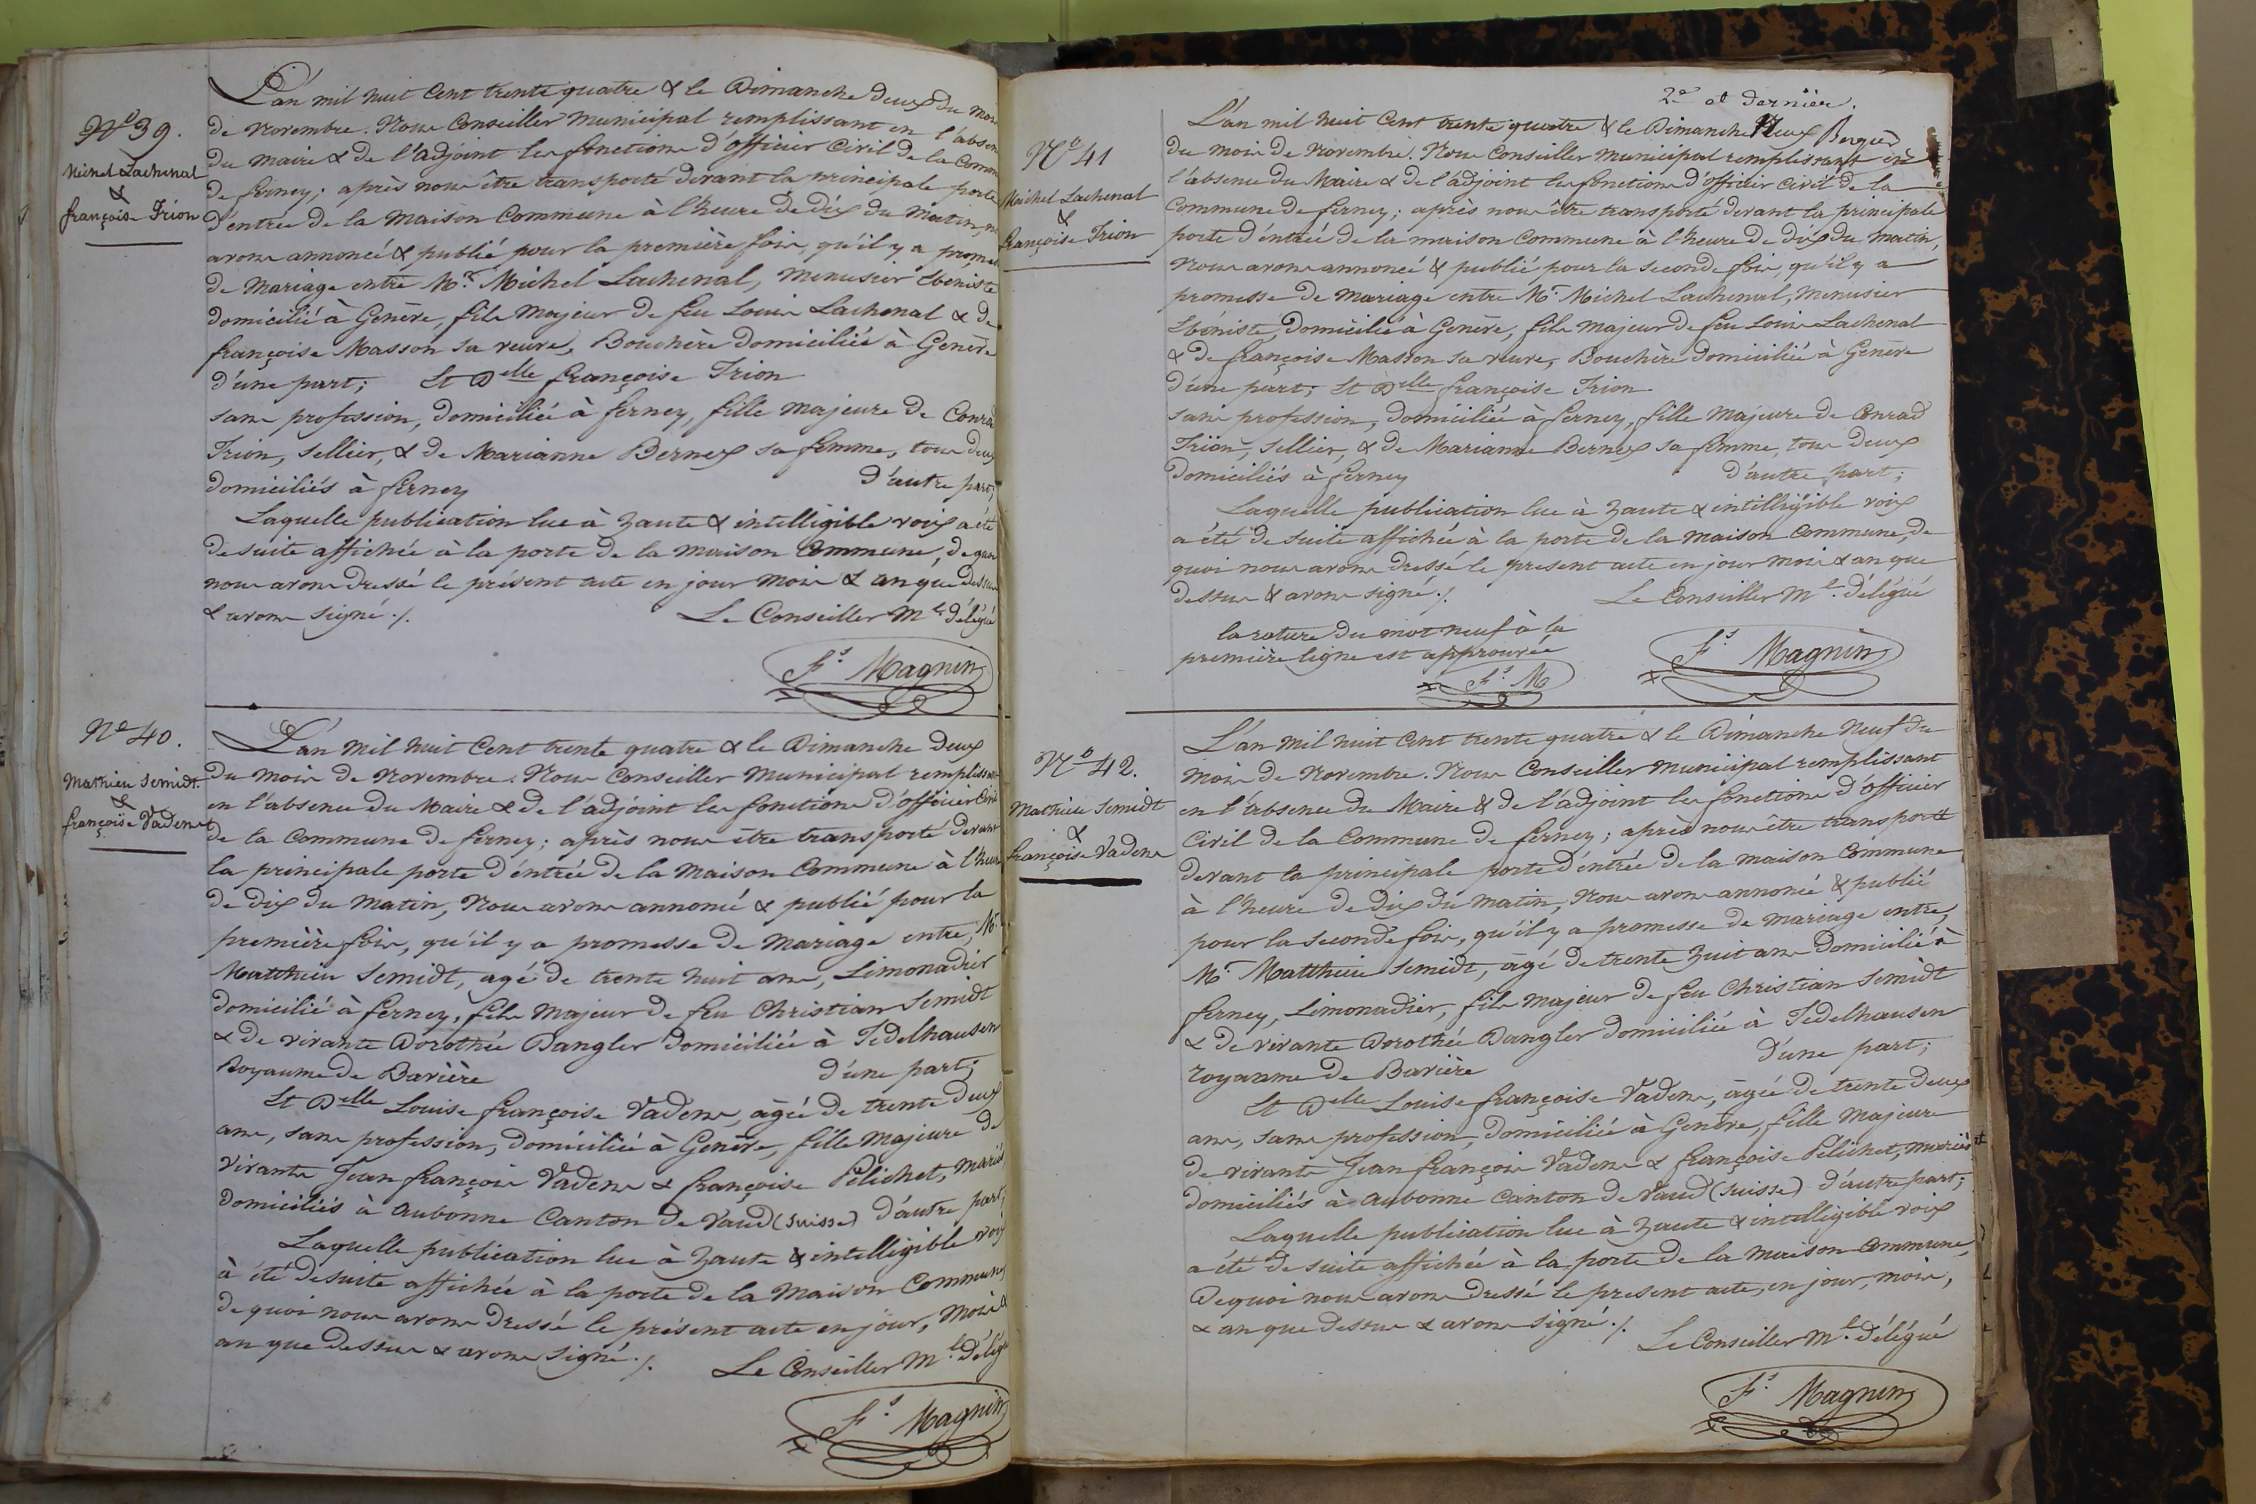 L'an mil huit Cent trente quatre & le Dimanche deux du mois
de Novembre. Nous Conseiller Municipal remplissant en l'absen
du Maire & de l'adjoint les fonctions d'officier Civil de la Commu
de ferney; après nous être transporté devant la principale porte
d'entrée de la Maison Commune à l'heure de dix du Matin,
avons annoncé & publié pour la première fois, qu'il y a promes
de Mariage entre Mr. Michel Lachenal, Menusier Ebéniste
domicilié à Genève, fils Majeur de feu Louis Lachenal & de
françoise Masson sa veuve, Bouchère domiciliée à Genève
d'une part; Et Delle françoise Trion
sans profession, domiciliée à ferney, fille Majeure de Conrad
Trion, Sellier, & de Marianne Bernex sa femme, tous deux
domiciliés à ferney d'autre part;
Laquelle publication lue à haute & intelligible voix a été
de suite affichée à la porte de la Maison Commune, de quoi
nous avons dressé le présent acte en jour Mois & an que dessus
& avons signé ./. Le Conseiller Ml. délégué
Fs. Magnin
No 39.
Michel Lachenal
&
françoise Trion
No 40.
Mathieu Semidt.
&
françoise Vadens
L'an Mil huit Cent trente quatre & le Dimanche Deux
du Mois de Novembre. Nous Conseiller Municipal remplissant
en l'absence du Maire & de l'adjoint les fonctions d'officier Civil
de la Commune de ferney; après nous être transporté devant
la principale porte d'éntrée de la Maison Commune à l'heure
de dix du Matin, Nous avons annoncé & publié pour la
première fois, qu'il y a promesse de Mariage entre, Mr.
Matthieu Semidt, agé de trente huit ans, Limonadier
domicilié à ferney, fils Majeur de feu Christian Semidt
& de vivante Dorothée Dangler domiciliée à Tedelhausen
Royaume de Bavière d'une part;
Et Delle Louise françoise Vadens, agée de trente deux
ans, sans profession, domiciliée à Genève, fille Majeure de
vivants Jean françois Vadens & françoise Pélichet, Mariés
domiciliés à Aubonne Canton de Vaud (Suisse) d'autre part;
Laquelle publication lue à haute & intelligible voix
à été de suite affichée à la porte de la Maison Commune,
de quoi nous avons dressé le présent acte en jour, Mois &
an que dessus & avons signé ./. Le Conseiller Ml. délég
Fs. Magnin
2e et dernière.
No 41
Michel Lachenal
&
françoise Trion
L'an mil huit Cent trente quatre & le Dimanche deux
du mois de Novembre. Nous Conseiller Municipal remplissant en
l'absence du Maire & de l'adjoint les fonctions d'officier Civil de la
Commune de ferney; après nous être transporté devant la principale
porte d'éntrée de la maison Commune à l'heure de dix du matin,
Nous avons annoncé & publié pour la seconde fois, qu'il y a
promesse de Mariage entre Mr. Michel Lachenal, Menusier
Ebéniste, domicilié à Genève, fils majeur de feu Louis Lachenal
& de françoise Masson sa veuve, Bouchère domiciliée à Genève
d'une part; Et Delle françoise Trion
sans profession, domiciliée à ferney, fille Majeure de Conrad
Trion, Sellier, & de Marianne Bernex sa femme, tous deux
domiciliés à ferney d'autre part;
Laquelle publication lue à haute & intelligible voix
a été de suite affichée à la porte de la maison Commune, de
quoi nous avons dressé le present acte en jour mois & an que
dessus & avons signé ./. Le Conseiller Ml. délégué
la rature du mot neuf à la
première ligne est approuvée
Fs. M
Fs. Magnin
No 42.
Mathieu Semidt
&
françoise Vadens
L'an Mil huit Cent trente quatre & le Dimanche Neuf du
Mois de Novembre. Nous Conseiller Municipal remplissant
en l'absence du Maire & de l'adjoint les fonctions d'officier
Civil de la Commune de ferney; après nous être transporté
devant la principale porte d'éntrée de la maison Commune
à l'heure de dix du matin, Nous avons annoncé & publié
pour la seconde fois, qu'il y a promesse de mariage entre,
Mr. Matthieu Semidt, agé de trente huit ans domicilié à
ferney, Limonadier, fils majeur de feu Christian Semidt
& de vivante Dorothée Dangler domiciliée à Tedelhausen
royaume de Bavière d'une part;
Et Delle Louise françoise Vadens, agée de trente deux
ans, sans profession, domiciliée à Genève, fille Majeure
de vivants Jean françois Vadens & françoise Pelichet, mariés et
domiciliés à Aubonne Canton de Vaud (Suisse) d'autre part;
Laquelle publication lue à haute & intelligible voix
a été de suite affichée à la porte de la maison Commune,
De quoi nous avons dressé le present acte, en jour, mois,
& an que dessus & avons signé ./. Le Conseiller Ml. délégué
Fs. Magnin